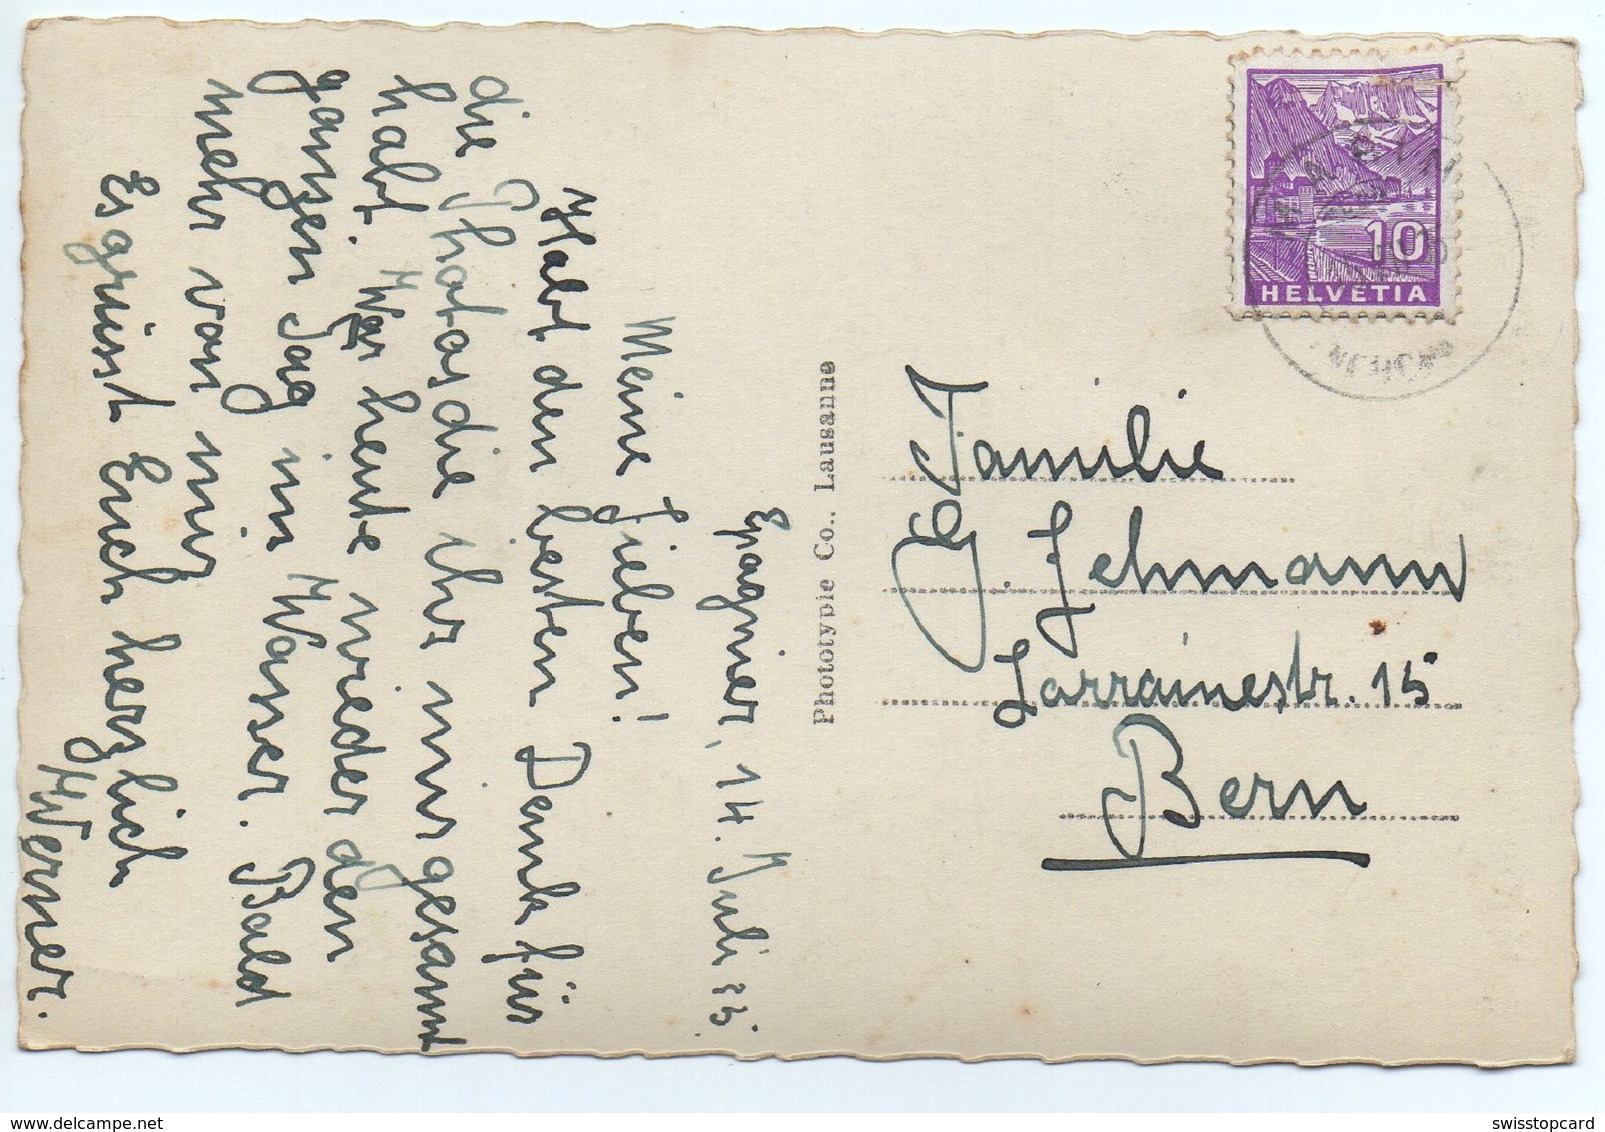 Epagnier, 14. Juli 35.
Meine Lieben!
Habt den besten Dank für
die Photos die ihr mir gesannt
habt. War heute wieder den
ganzen Tag im Wasser. Bald
mehr von mir
Es grüsst Euch herzlich
Werner.
Phototypie Co., Lausanne
10
HELVETIA
MARIN
Familie
G. Lehmann
Lorrainestr. 15
Bern
swisstopcard